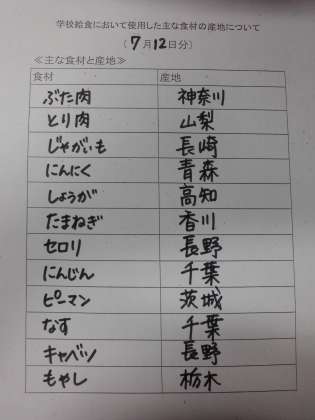 学校給食において使用した主な食材の産地について
(7月12日分)
≪主な食材と産地≫
食材 産地
ぶた肉 神奈川
とり肉 山梨
じゃがいも 長崎
にんにく 青森
しょうが 高知
たまねぎ 香川
セロリ 長野
にんじん 千葉
ピーマン 茨城
なす 千葉
キャベツ 長野
もやし 栃木